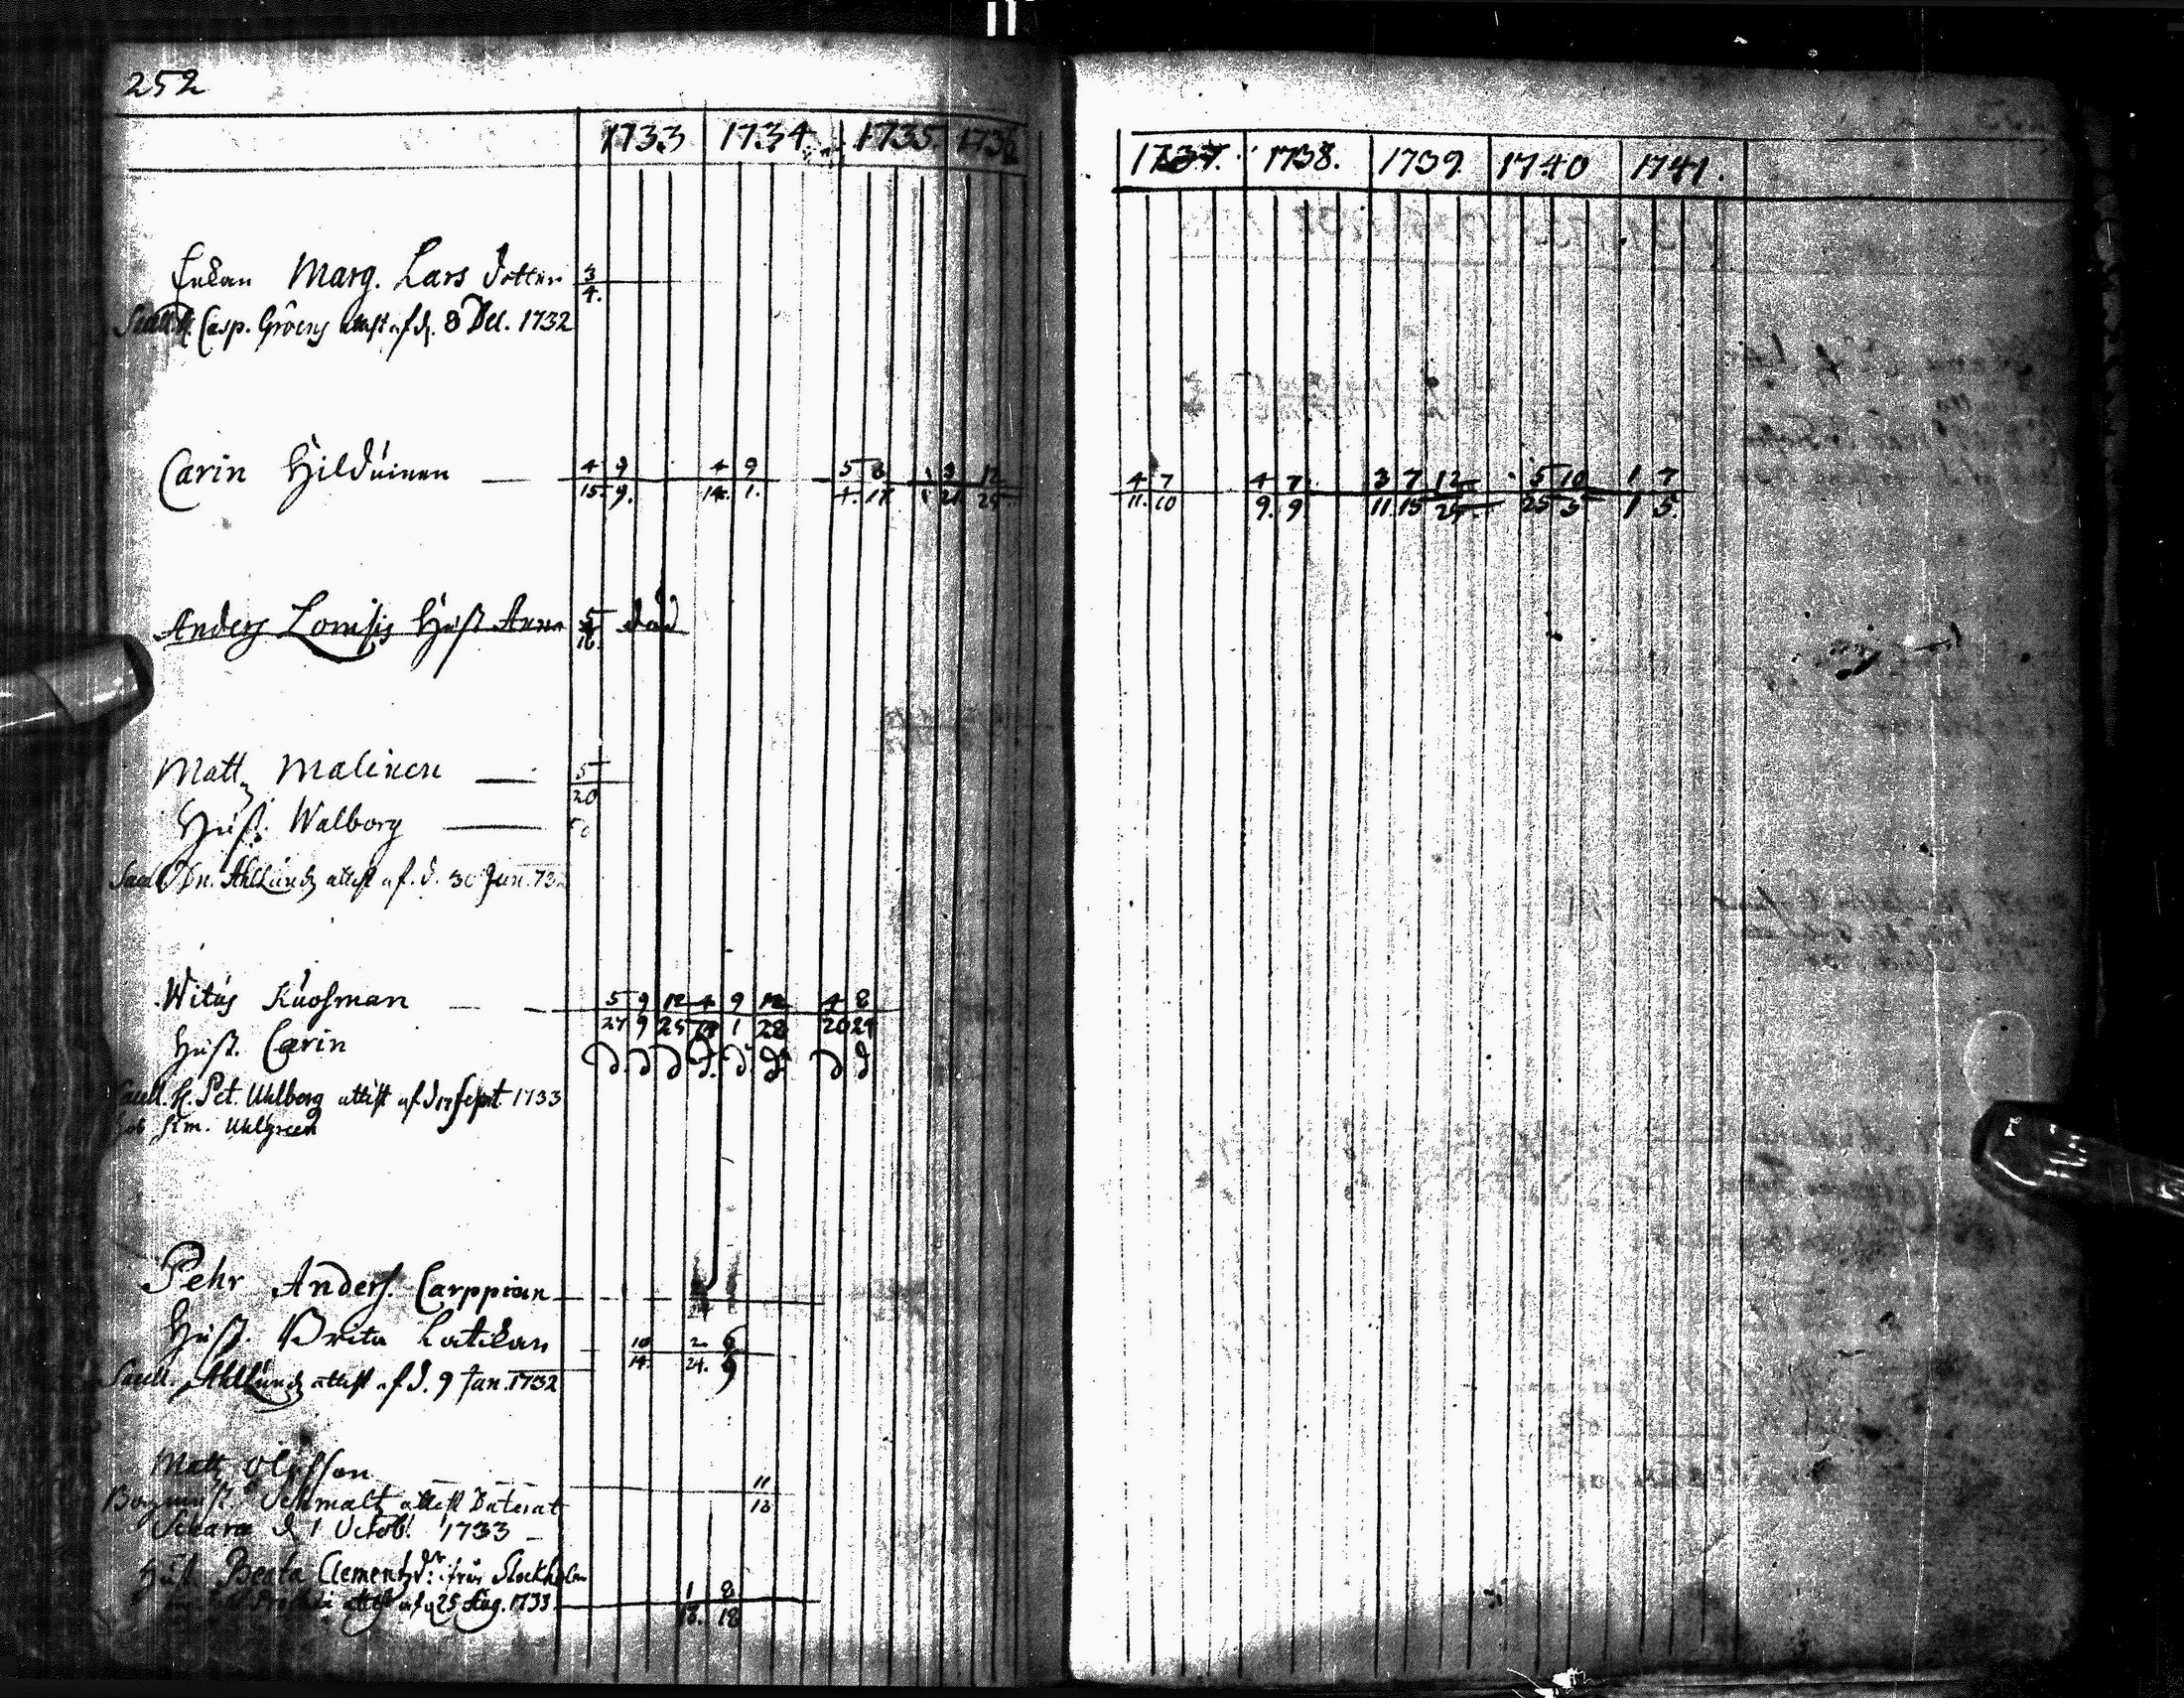 252
1733 1734 1735 1736
Enkan Marg. Lars dotter 3/4.
Casp. Gröens attest af d. 8 Dec. 1732
Carin Hilduinen — 4/15 9/9. 4/14. 9/1. 5/4. 8/17 3/21 12/25
Anders Lomsis Hust Anna 5/16. död
Matts Malinen — 5/20
Hust. Walborg —
Dn. Ahllundz attest af. d. 30 Jun. 732
Witus Kuosman — 5/27 9/9 12/25 4/19 9/1 12/28 4/20 8/24
Hust. Carin D. D D D. D D D D
Sacell. H. Pet. Uhlberg attest af d 17 Sept 1733
Km. Uhlgreen
Pehr Anders. Carppian
Hust. Brita Latikan 10/14. 2/24. 6/9
Sacell. Ahllundz attest af d. 9 Jan. 1732
Matts Olsson 11/18
Schmaltz attest Daterat
d 1 Octob. 1733
Hust. Beata Clementzdr: från Stockholm
attest af 25 Aug. 1733 1/18. 8/18
1737. 1738. 1739. 1740 1741.
4/11. 7/10 4/9. 7/9 3/11 7/15 12/25 5/25 10/5 1/1 7/5